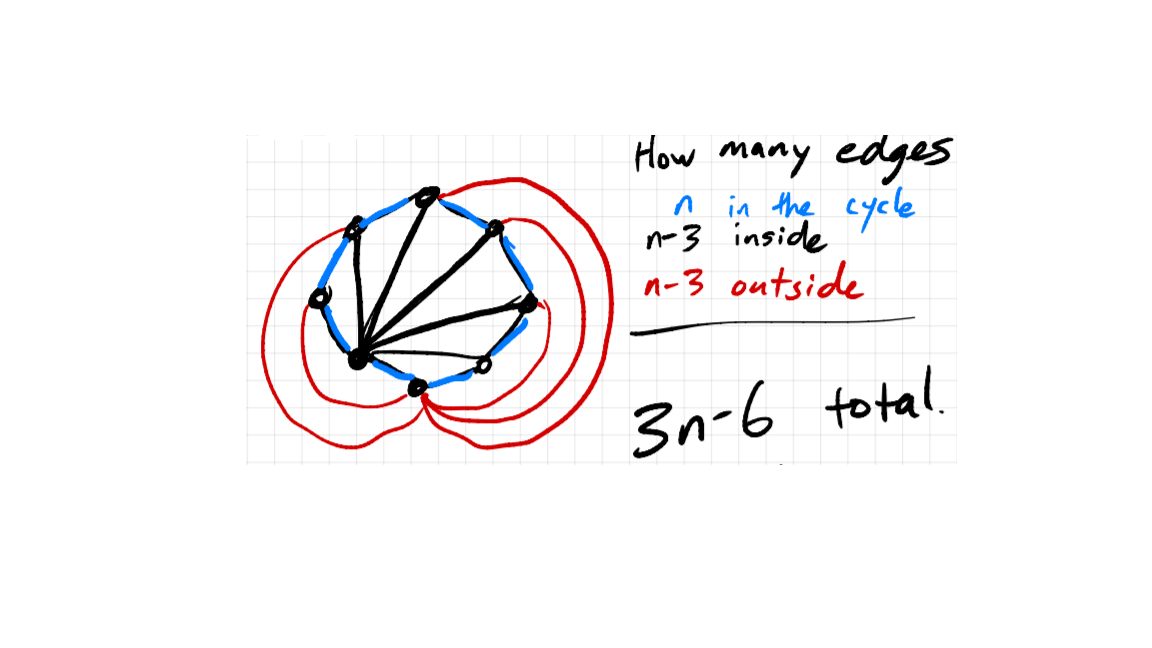 How many edges
n in the cycle
n-3 inside
n-3 outside
3n-6 total.